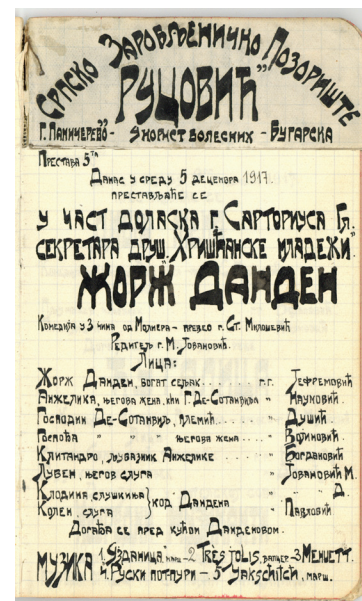 Српско Заробљеничко Позориште
"Руцовић"
Г. Паничерево - у корист болесних - Бугарска
Престава 5та
Данас у среду 5 децембра 1917.
престављаће се
у част доласка г. Сарториуса Гл.
секретара друш. "Хришћанске младежи"
Жорж Данден
Комедија у 3 чина од Молиера - превео г. Ст. Милошевић
Редитељ г. М. Јовановић.
Лица:
Жорж Данден, богат сељак . . . . . . . г.г. Јефремовић
Анжелика, његова жена, кћи Г. Де-Сотанвиља " Науковић.
Господин Де-Сотанвиљ, племић. . . . . . " Душић.
Госпођа " " " његова жена . . . . . "
Клитандро, љубавник Анжелике . . . . . " Богдановић
Лубен, његов слуга " Јовановић М.
Клодина слушкиња } код Дандена " Д.
Колен, слуга " Павловић
Догађа се пред кућом Данденовом.
МУЗИКА 1. Узданица, марш - 2 Très jolis, валцер - 3 Менуетт.
4. Руски потпури - 5 Yakschitch, марш.